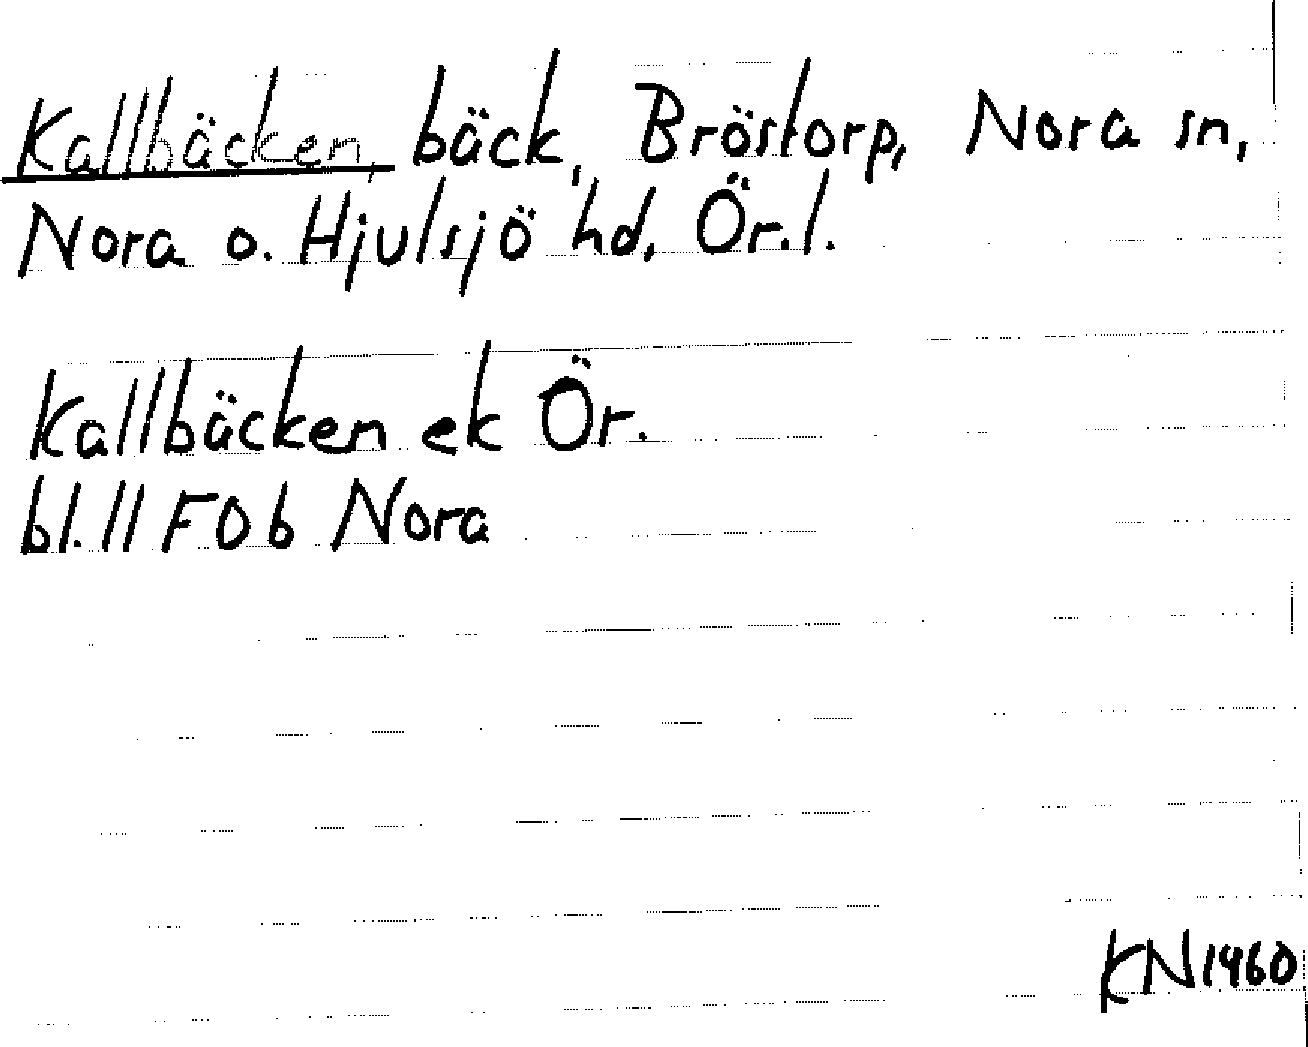 Kallbäcken, bäck, Bröstorp, Nora sn,
Nora o. Hjulsjö hd, Ör.l.
Kallbäcken ek Ör.
bl.11 F0b Nora
KN1960